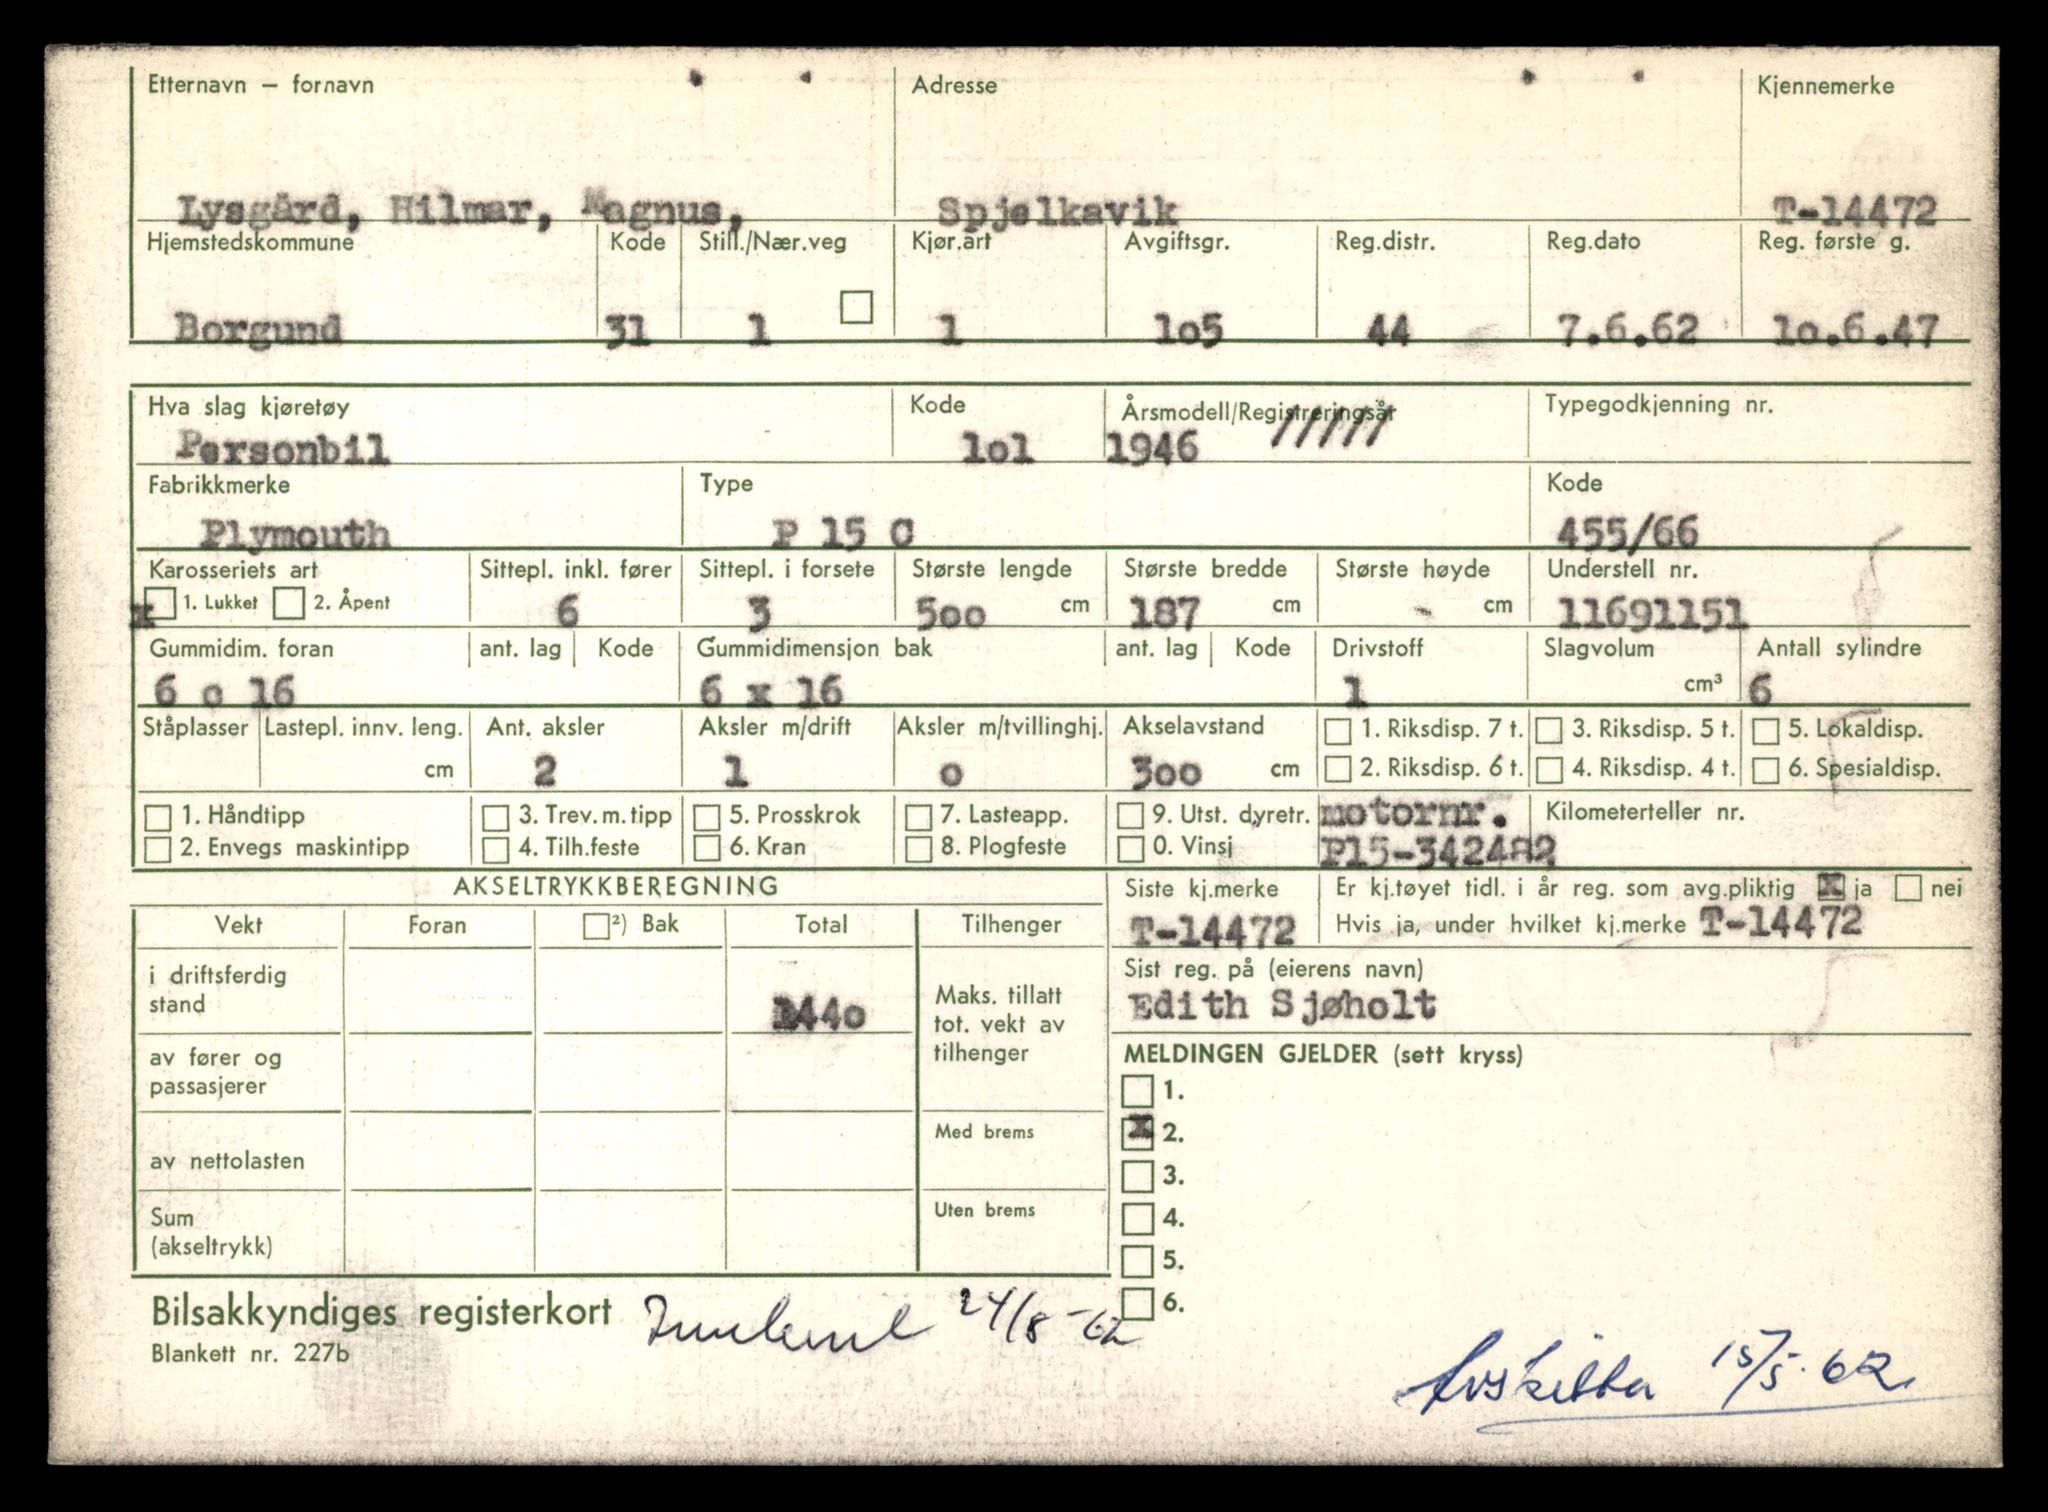 Etternavn – fornavn Adresse Kjennemerke
Lysgård, Hilmar, Magnus, Spjelkavik T-14472
Hjemstedskommune Kode Still./Nær.veg Kjør.art Avgiftsgr. Reg.distr. Reg.dato Reg. første g.
Borgund 31 1 1 1o5 44 7.6.62 1o.6.47
Hva slag kjøretøy Kode Årsmodell/Registreringsår Typegodkjenning nr.
Personbil 1o1 1946 /////
Fabrikkmerke Type Kode
Plymouth P 15 C 455/66
Karosseriets art Sittepl. inkl. fører Sittepl. i forsete Største lengde Største bredde Største høyde Understell nr.
x 1. Lukket 2. Åpent 6 3 5oo cm 187 cm - cm 11691151
Gummidim. foran ant. lag Kode Gummidimensjon bak ant. lag Kode Drivstoff Slagvolum Antall sylindre
6 o 16 6 x 16 1 cm³ 6
Ståplasser Lastepl. innv. leng. Ant. aksler Aksler m/drift Aksler m/tvillinghj. Akselavstand 1. Riksdisp. 7 t. 3. Riksdisp. 5 t. 5. Lokaldisp.
cm 2 1 o 3oo cm 2. Riksdisp. 6 t. 4. Riksdisp. 4 t. 6. Spesialdisp.
1. Håndtipp 3. Trev. m. tipp 5. Prosskrok 7. Lasteapp. 9. Utst. dyretr. motornr. Kilometerteller nr.
2. Envegs maskintipp 4. Tilh.feste 6. Kran 8. Plogfeste 0. Vinsj P15-342482
AKSELTRYKKBEREGNING Siste kj.merke Er kj.tøyet tidl. i år reg. som avg.pliktig x ja nei
Vekt Foran ²) Bak Total Tilhenger T-14472 Hvis ja, under hvilket kj.merke T-14472
i driftsferdig stand 144o Maks. tillatt tot. vekt av tilhenger
Sist reg. på (eierens navn)
Edith Sjøholt
av fører og passasjerer
MELDINGEN GJELDER (sett kryss)
1.
x 2.
av nettolasten Med brems
3.
4.
Sum (akseltrykk) Uten brems
5.
6.
Bilsakkyndiges registerkort 24/8-62
Blankett nr. 227b
Avskilta 15/5-62